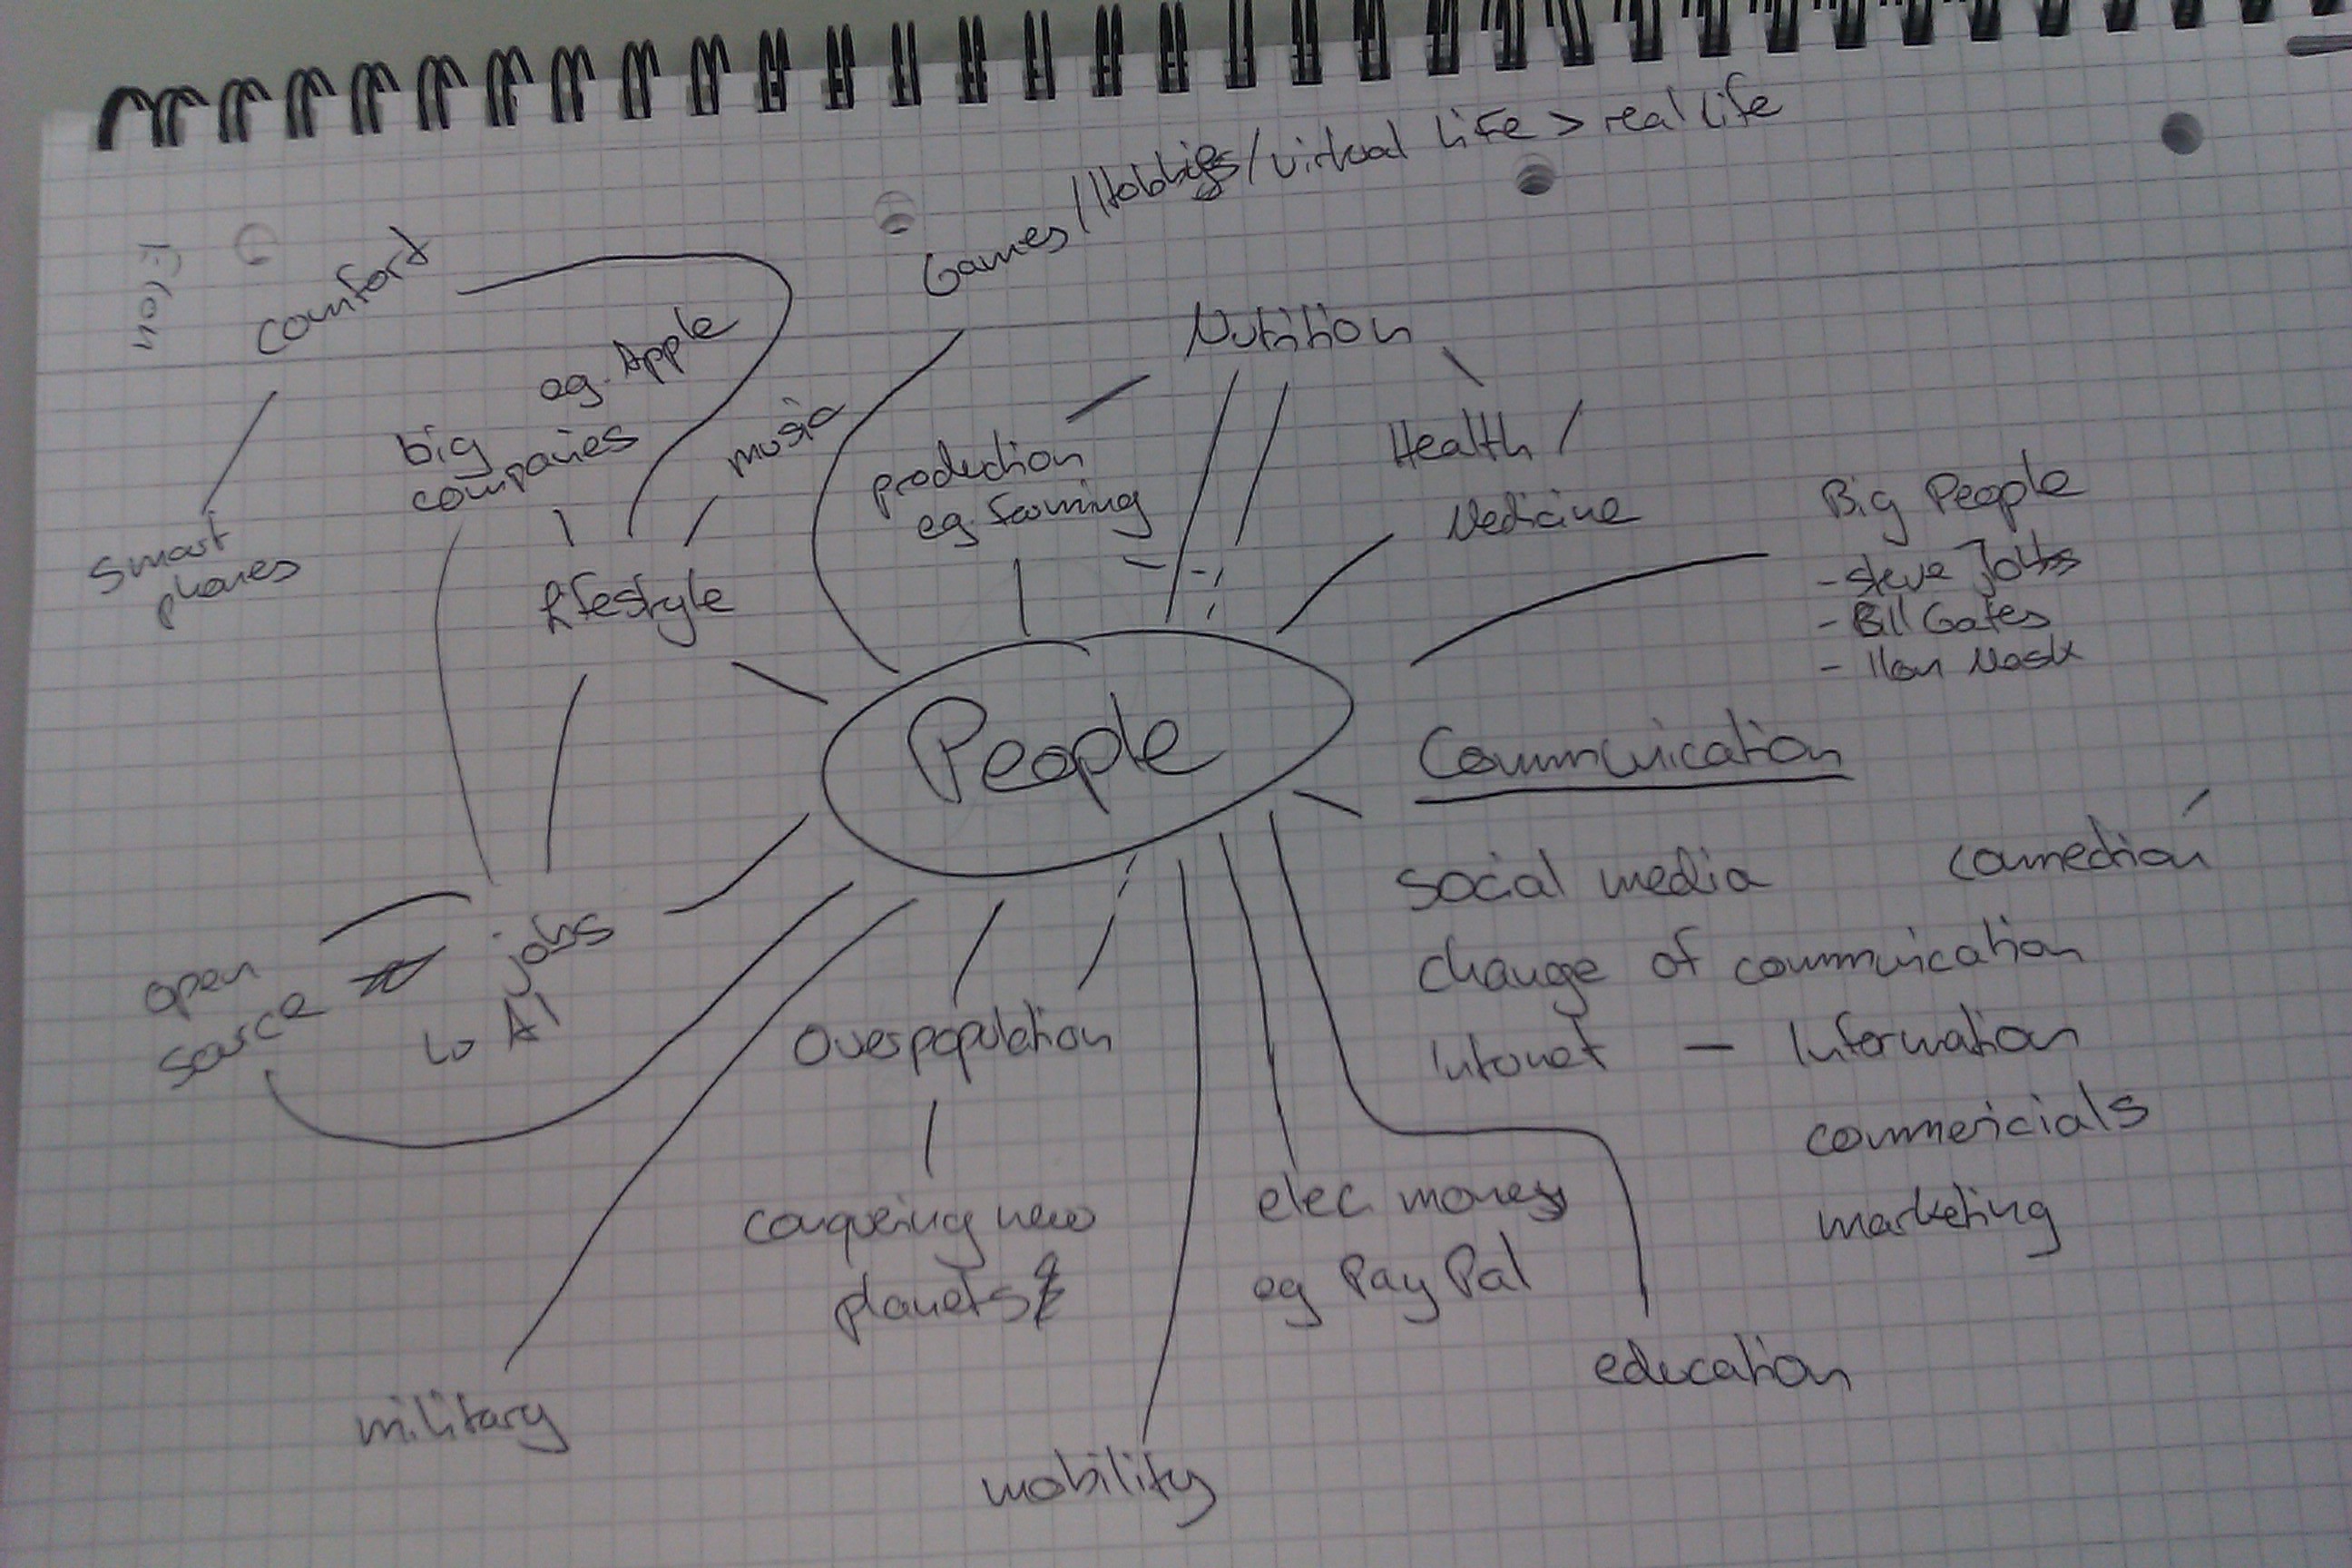 Games/Hobbies/virtual Life > real life
Elon
comfort
eg. Apple
Nutrition
music
big
companies
production
eg. farming
Health /
Medicine
Big People
- Steve Jobs
- Bill Gates
- Ilon Mask
smart
phones
Lifestyle
People
Communication
social media
connection
change of communication
Internet - Information
commericials
marketing
open
source
jobs
↳ AI
Overpopulation
conquering new
planets
elec money
eg PayPal
education
military
mobility